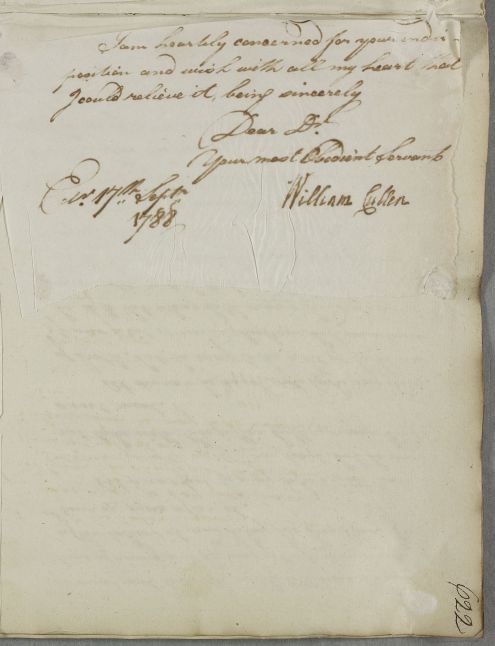 I am heartily concerned for your indis-
position and wish with all my heart that
I could relieve it, being sincerely
Dear Dr.
Your most Obedient Servant
Edr. 17th. Septr.
1788
William Cullen
622